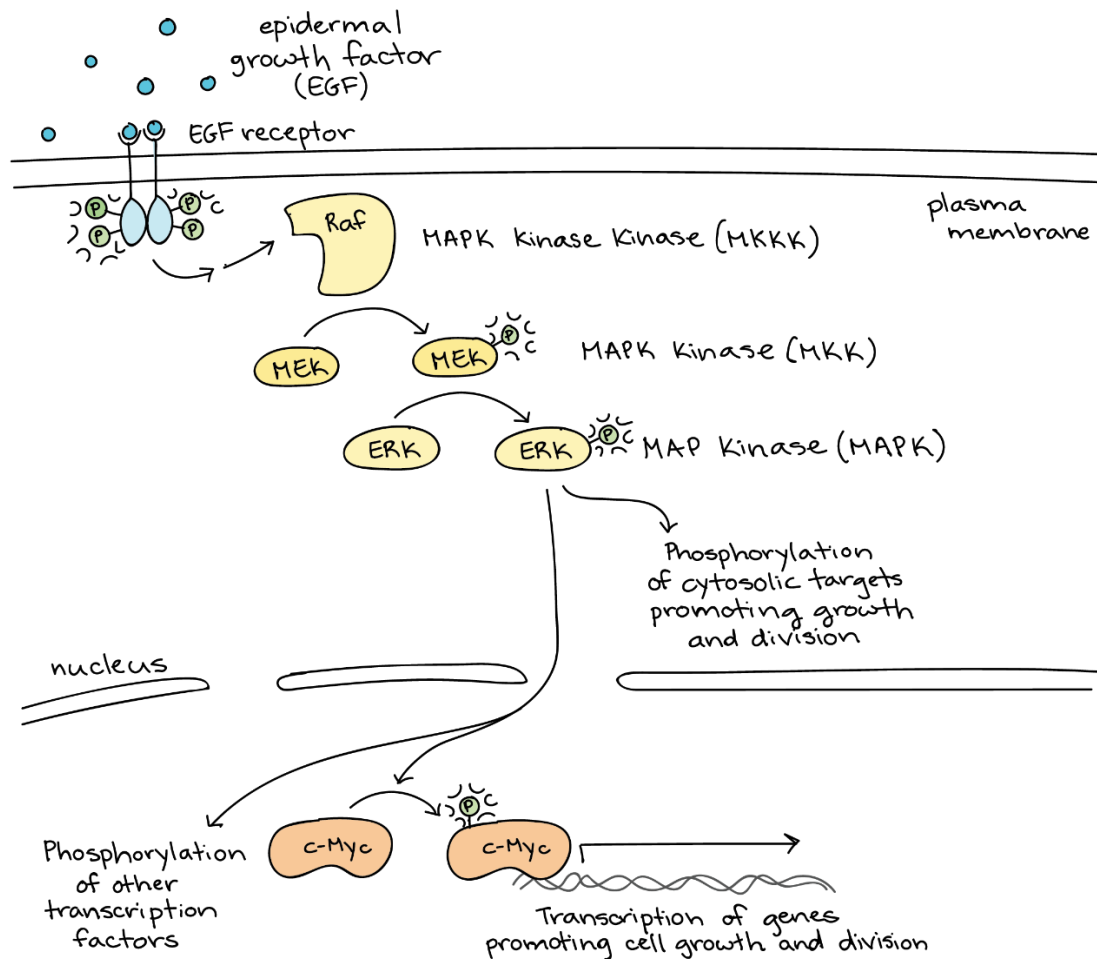 epidermal
growth factor
(EGF)
EGF receptor
P
P
P
P
plasma
membrane
Raf
MAPK Kinase Kinase (MKKK)
MEK
MEK
P
MAPK Kinase (MKK)
ERK
ERK
P
MAP Kinase (MAPK)
Phosphorylation
of cytosolic targets
promoting growth
and division
nucleus
Phosphorylation
of other
transcription
factors
c-Myc
P
c-Myc
Transcription of genes
promoting cell growth and division